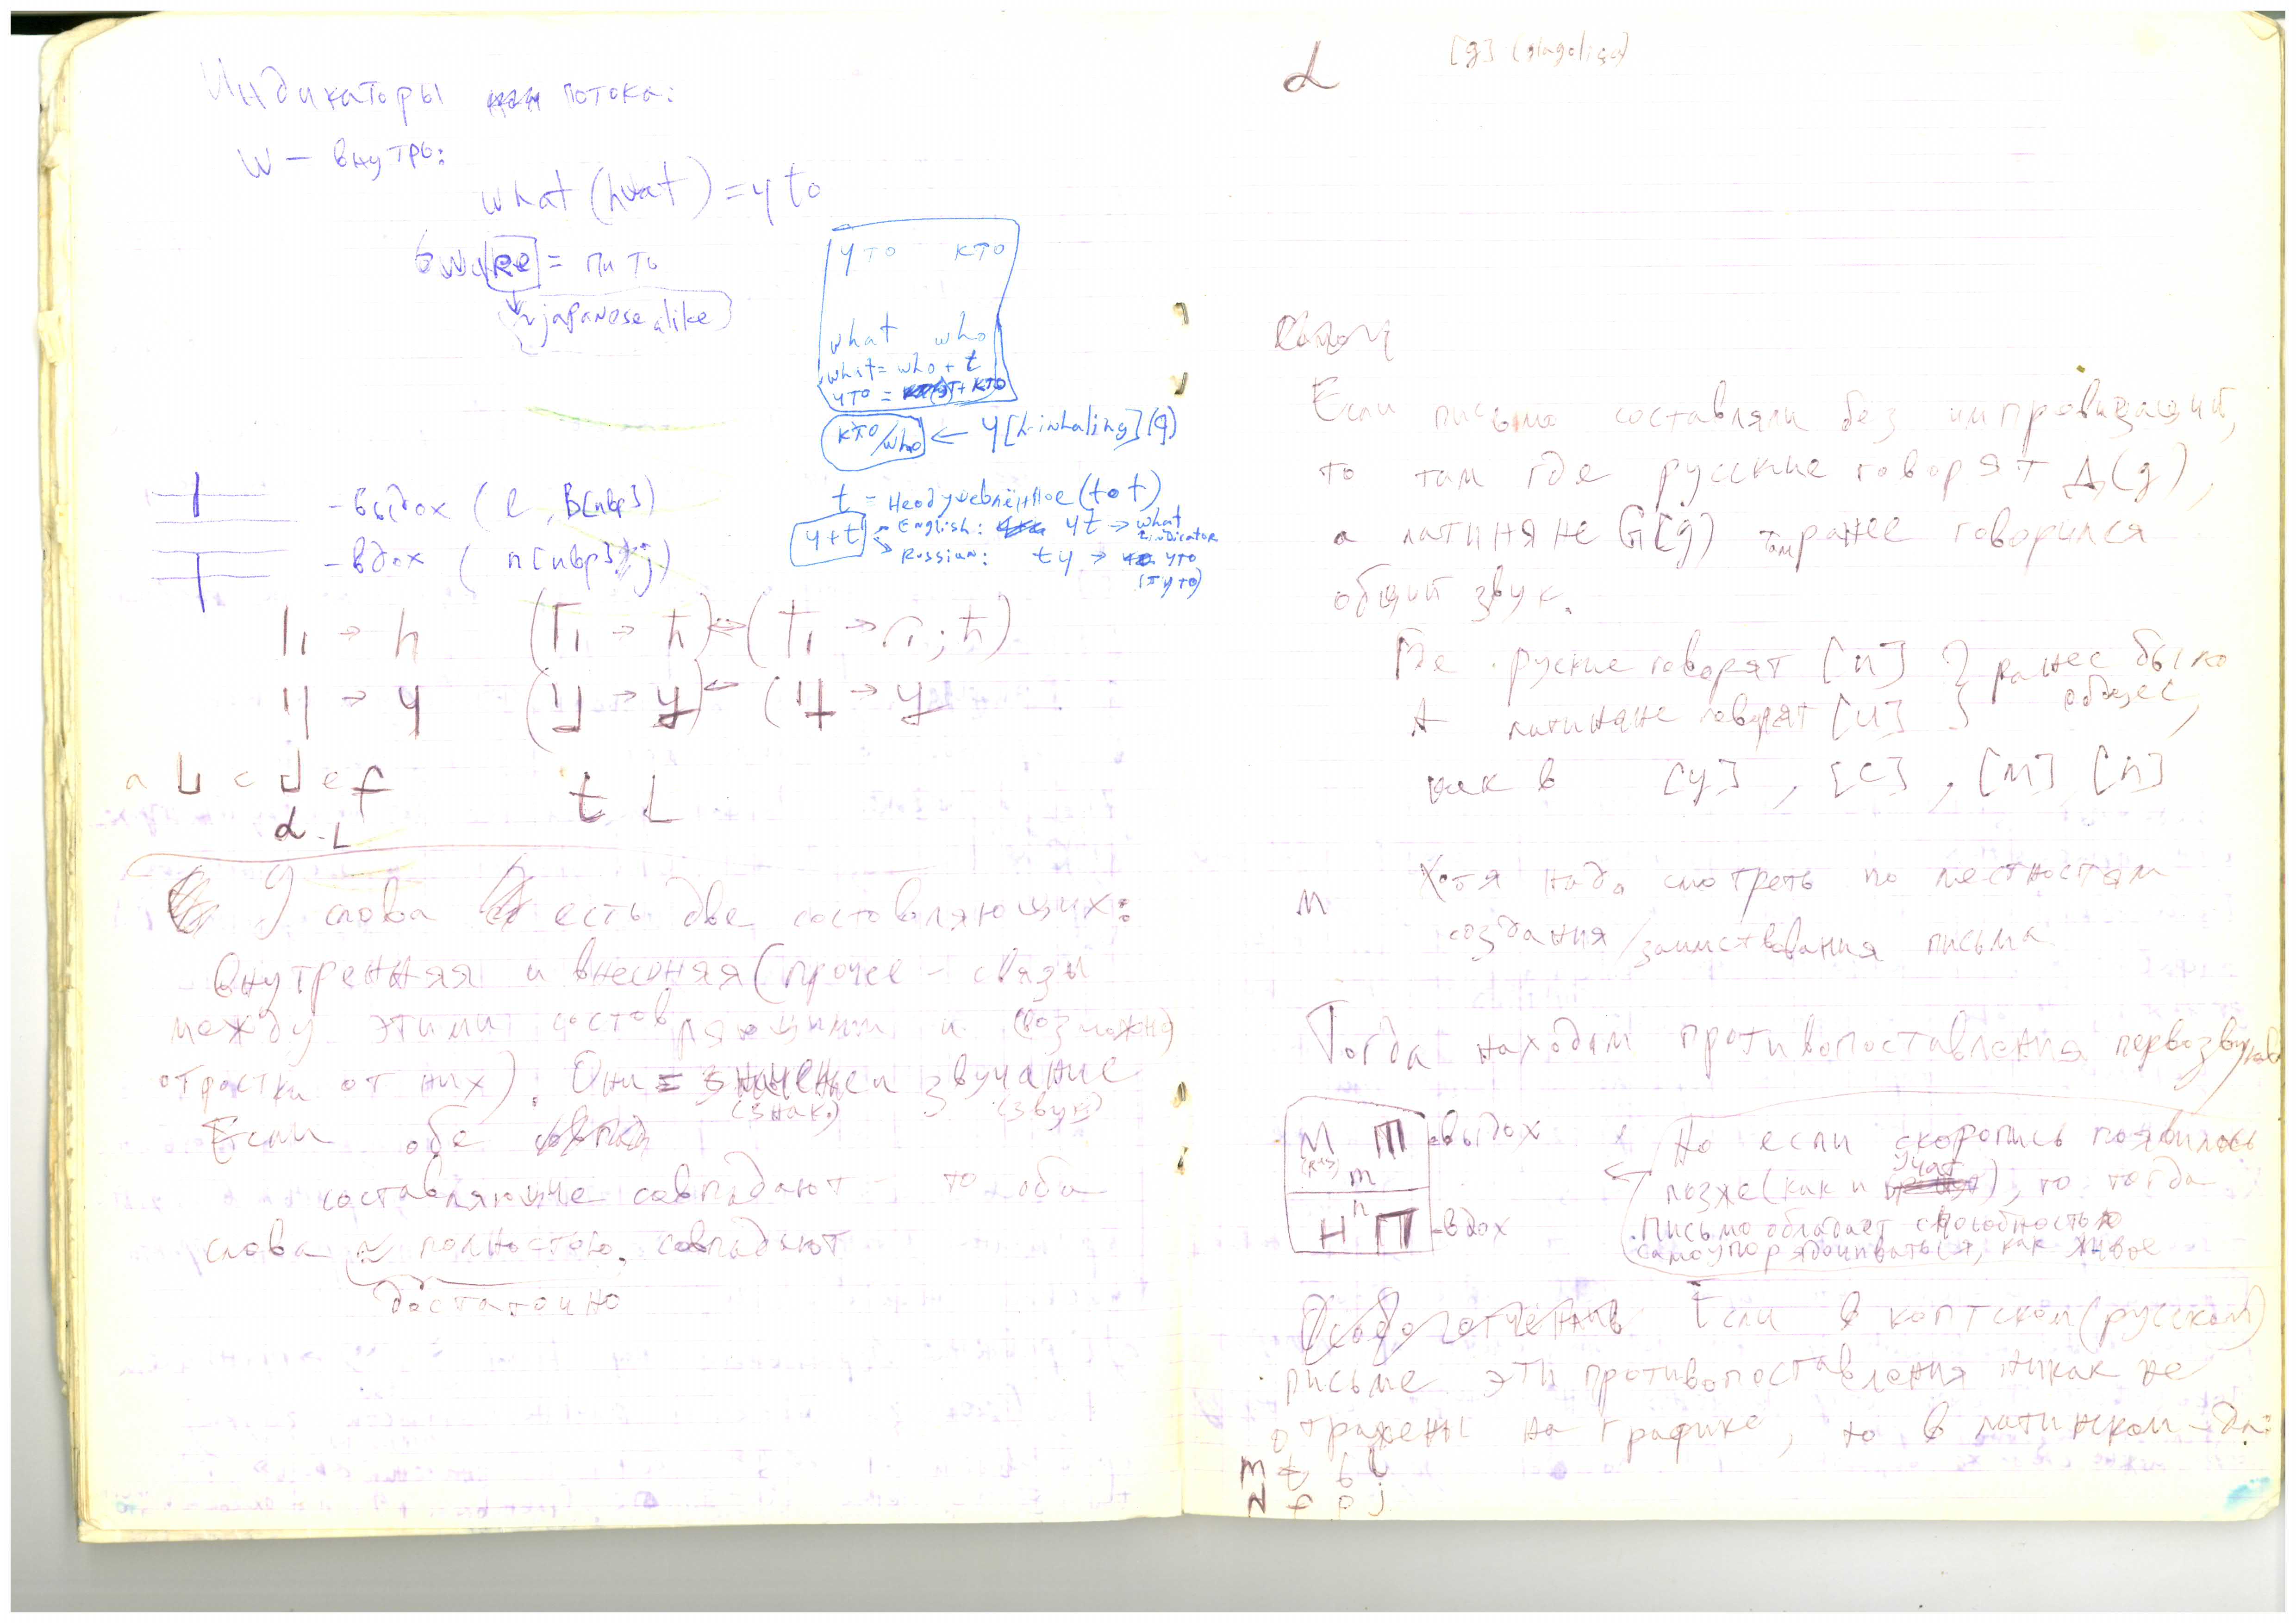 Индикаторы потока:
W – внутрь:
what (hwat) = 4 to
= пить
~ japanose alike
что кто
what who
what = who + t
что = + кто
кто/who ← 4 [h-inhaling] (q)
t = неодушевлённое (tot)
4+t
English: 4t → what indicator
Russian: t4 → что
(т что)
– выдох (
– вдох (
→ h
→ 4
a b c d e f t L
d L
У слова есть две состовляющих:
– Внутренняя и внешняя (прочее – связи
между этими составляющими и (возможно)
отростки от них). Они = значение и звучание
(знак) (звук)
Если обе
составляющие совпадают – то оба
слова ~ полностью совпадают
достаточно
d [g] (glagoliça)
Если письмо составляли без импровизаций,
то там где русские говорят Д(g),
а латиняне G[g] там ранее говорился
общий звук.
Где руские говорят [п] } ранее было
А латиняне говорят [u] } общее,
как в [y], [c], [м] [n]
М Хотя надо смотреть по местностям
создания/заимствования письма
Тогда находим противопоставления первозвуков
М Ш – выдох
m
n
Н П – вдох
Но если скоропись появилась
позже (как и учат), то тогда
письмо обладает способностью
самоупорядочиваться, как живое
Если в коптском (русском)
письме эти противопоставления никак не
отражены на графике, то в латинском – да:
m t b l
N f p j